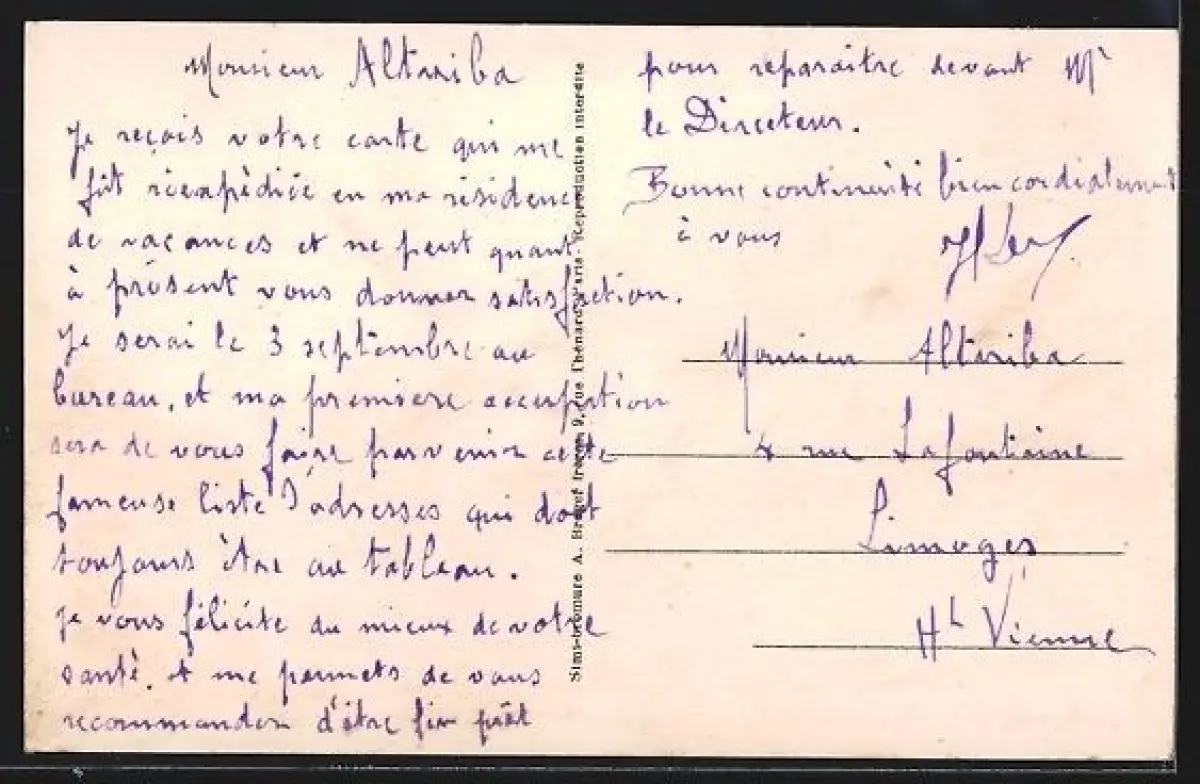 Monsieur Altariba
Je reçois votre carte qui me
fût réexpédiée en ma résidence
de vacances et ne peut quant
à présent vous donner satisfaction.
Je serai le 3 septembre au
bureau, et ma premiere occupation
sera de vous faire parvenir cette
fameuse liste d'adresses qui doit
toujours être au tableau.
Je vous félicite du mieux de votre
santé. et me permets de vous
recommander d'être fin prêt
pour reparaitre devant Mr
le Directeur.
Bonne continuité bien cordialement
à vous
Monsieur Altariba
4 rue Lafontaine
Limoges
Ht Vienne
Simi-bromure A. Breger frères, 9, rue Thénard Paris - Reproduction interdite